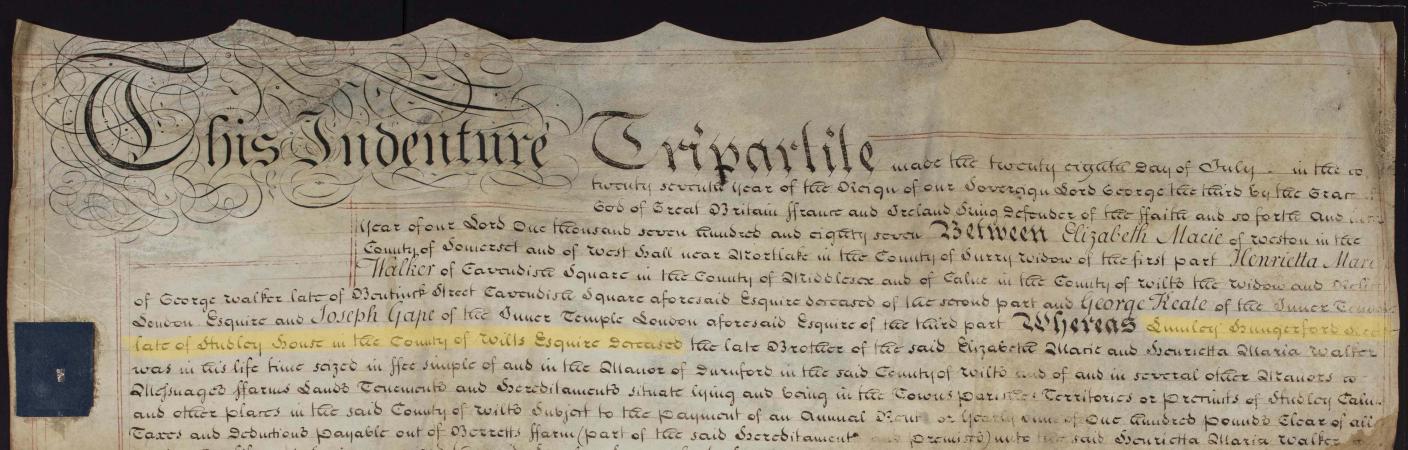 This Indenture Tripartite made the twenty eighth Day of July in the
twenty seventh year of the Reign of our Sovereign Lord George the third by the Grace
God of Great Britain ffrance and Ireland King Defender of the ffaith and so forth And
Year of our Lord One thousand seven hundred and eighty seven Between Elizabeth Macie of Weston in the
County of Somerset and of West Hall near Mortlake in the County of Surry Widow of the first part Henrietta Mari
Walker of Cavendish Square in the County of Middlesex and of Calne in the County of Wilts the Widow and Relict
of George Walker late of Bentinck Street Cavendish Square aforesaid Esquire deceased of the second part and George Keate of the Inner Temple
London Esquire and Joseph Gape of the Inner Temple London aforesaid Esquire of the third part Whereas Lumley Hungerford
late of Studley House in the County of Wilts Esquire deceased the late Brother of the said Elizabeth Macie and Henrietta Maria Walker
was in his life time seized in ffee simple of and in the Manor of Durnford in the said County of Wilts and of and in several other Manors
Messuages ffarms Lands Tenements and Hereditaments situate lying and being in the Towns parishes Territories or Precincts of Studley
and other places in the said County of Wilts Subject to the payment of an Annual Rent or Yearly sum of One hundred pounds Clear of all
Taxes and Deductions payable out of Berretts ffarm (part of the said Hereditaments and premises) unto the said Henrietta Maria Walker